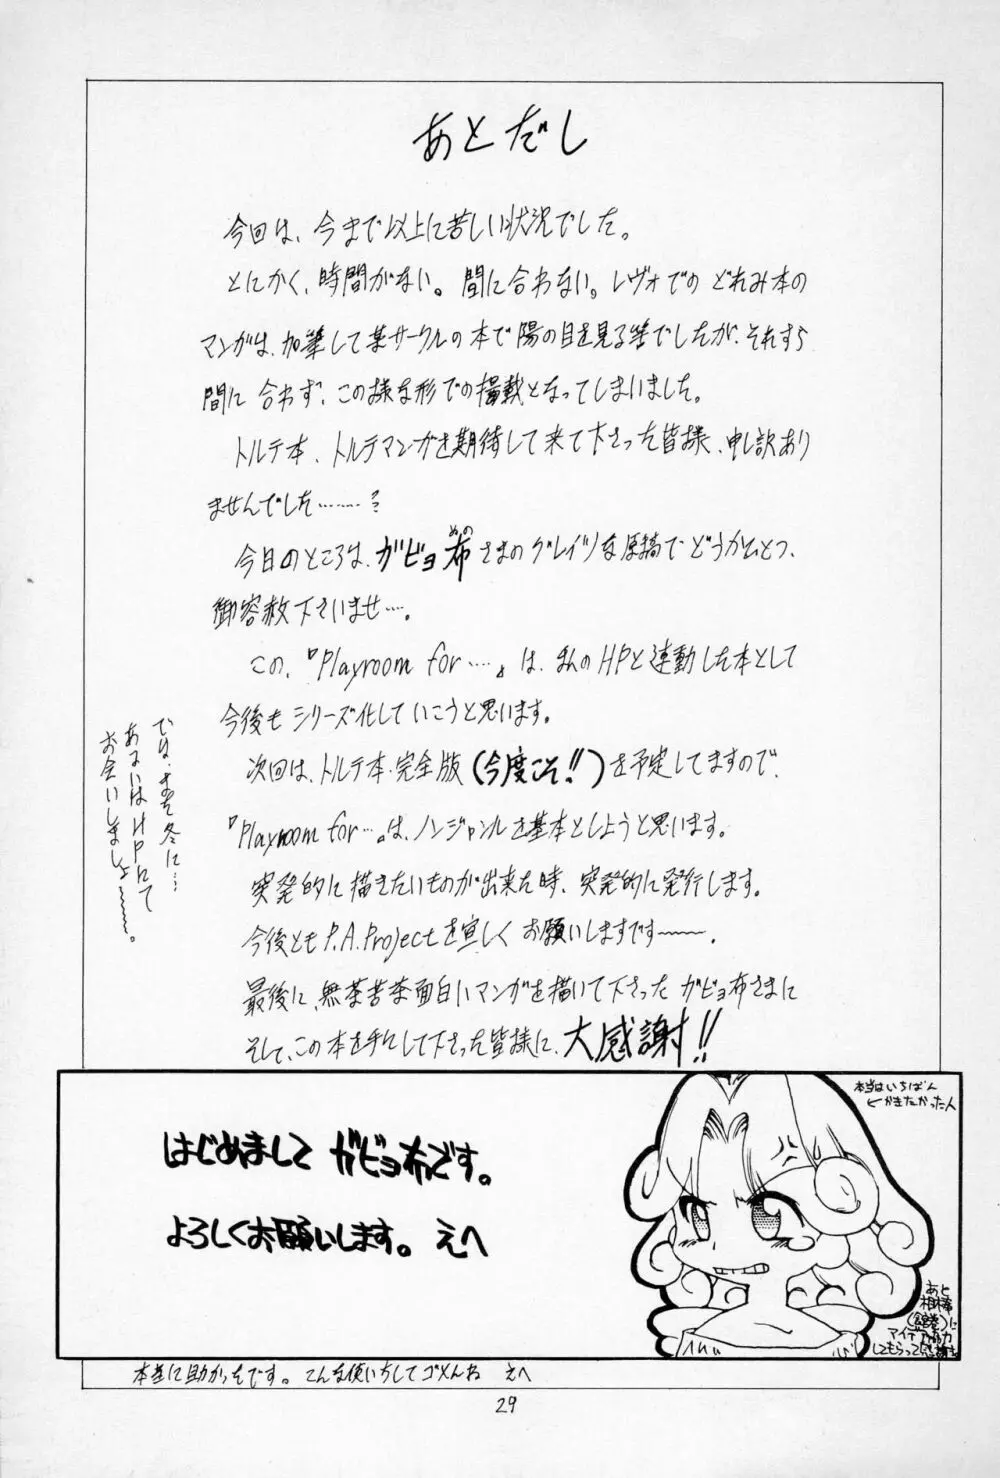 あとだし
今回は、今まで以上に苦しい状況でした。
とにかく、時間がない。間に合わない。レヴォでの どれみ本の
マンガは、加筆して某サークルの本で陽の目を見る筈でしたが、それすら
間に合わず、この様な形での掲載となってしまいました。
トルテ本、トルテマンガを期待して来て下さった皆様、申し訳あり
ませんでした………?
今日のところは、ガビョ布さまのグレイツな原稿でどうかひとつ、
めの
御容赦下さいませ…。
この、『Playroom for…』は、まんのHPと連動した本として
今後もシリーズ化していこうと思います。
次回は、トルテ本・完全版(今度こそ!!)を予定してますので、
『Playroom for…』は、ノンジャンルを基本としようと思います。
突発的に描きたいものが出来た時、突発的に発行します。
今後ともP.A.Projectを宜しくお願いしますです〜〜。
最後に、無茶苦茶面白いマンガを描いて下さったガビョ布さまに
そして、この本を手にして下さった皆様に、大感謝!!
では、また冬に…
あるいはHPにて
お会いしましょ〜〜。
はじめまして ガビョ布です。
よろしくお願いします。 えへ
本当はいちばん
←かきたかった人
あと
相棒
に
アイデア協力
してもらって感謝
本当に助かったです。こんな使いちしてゴメんね えへ
29